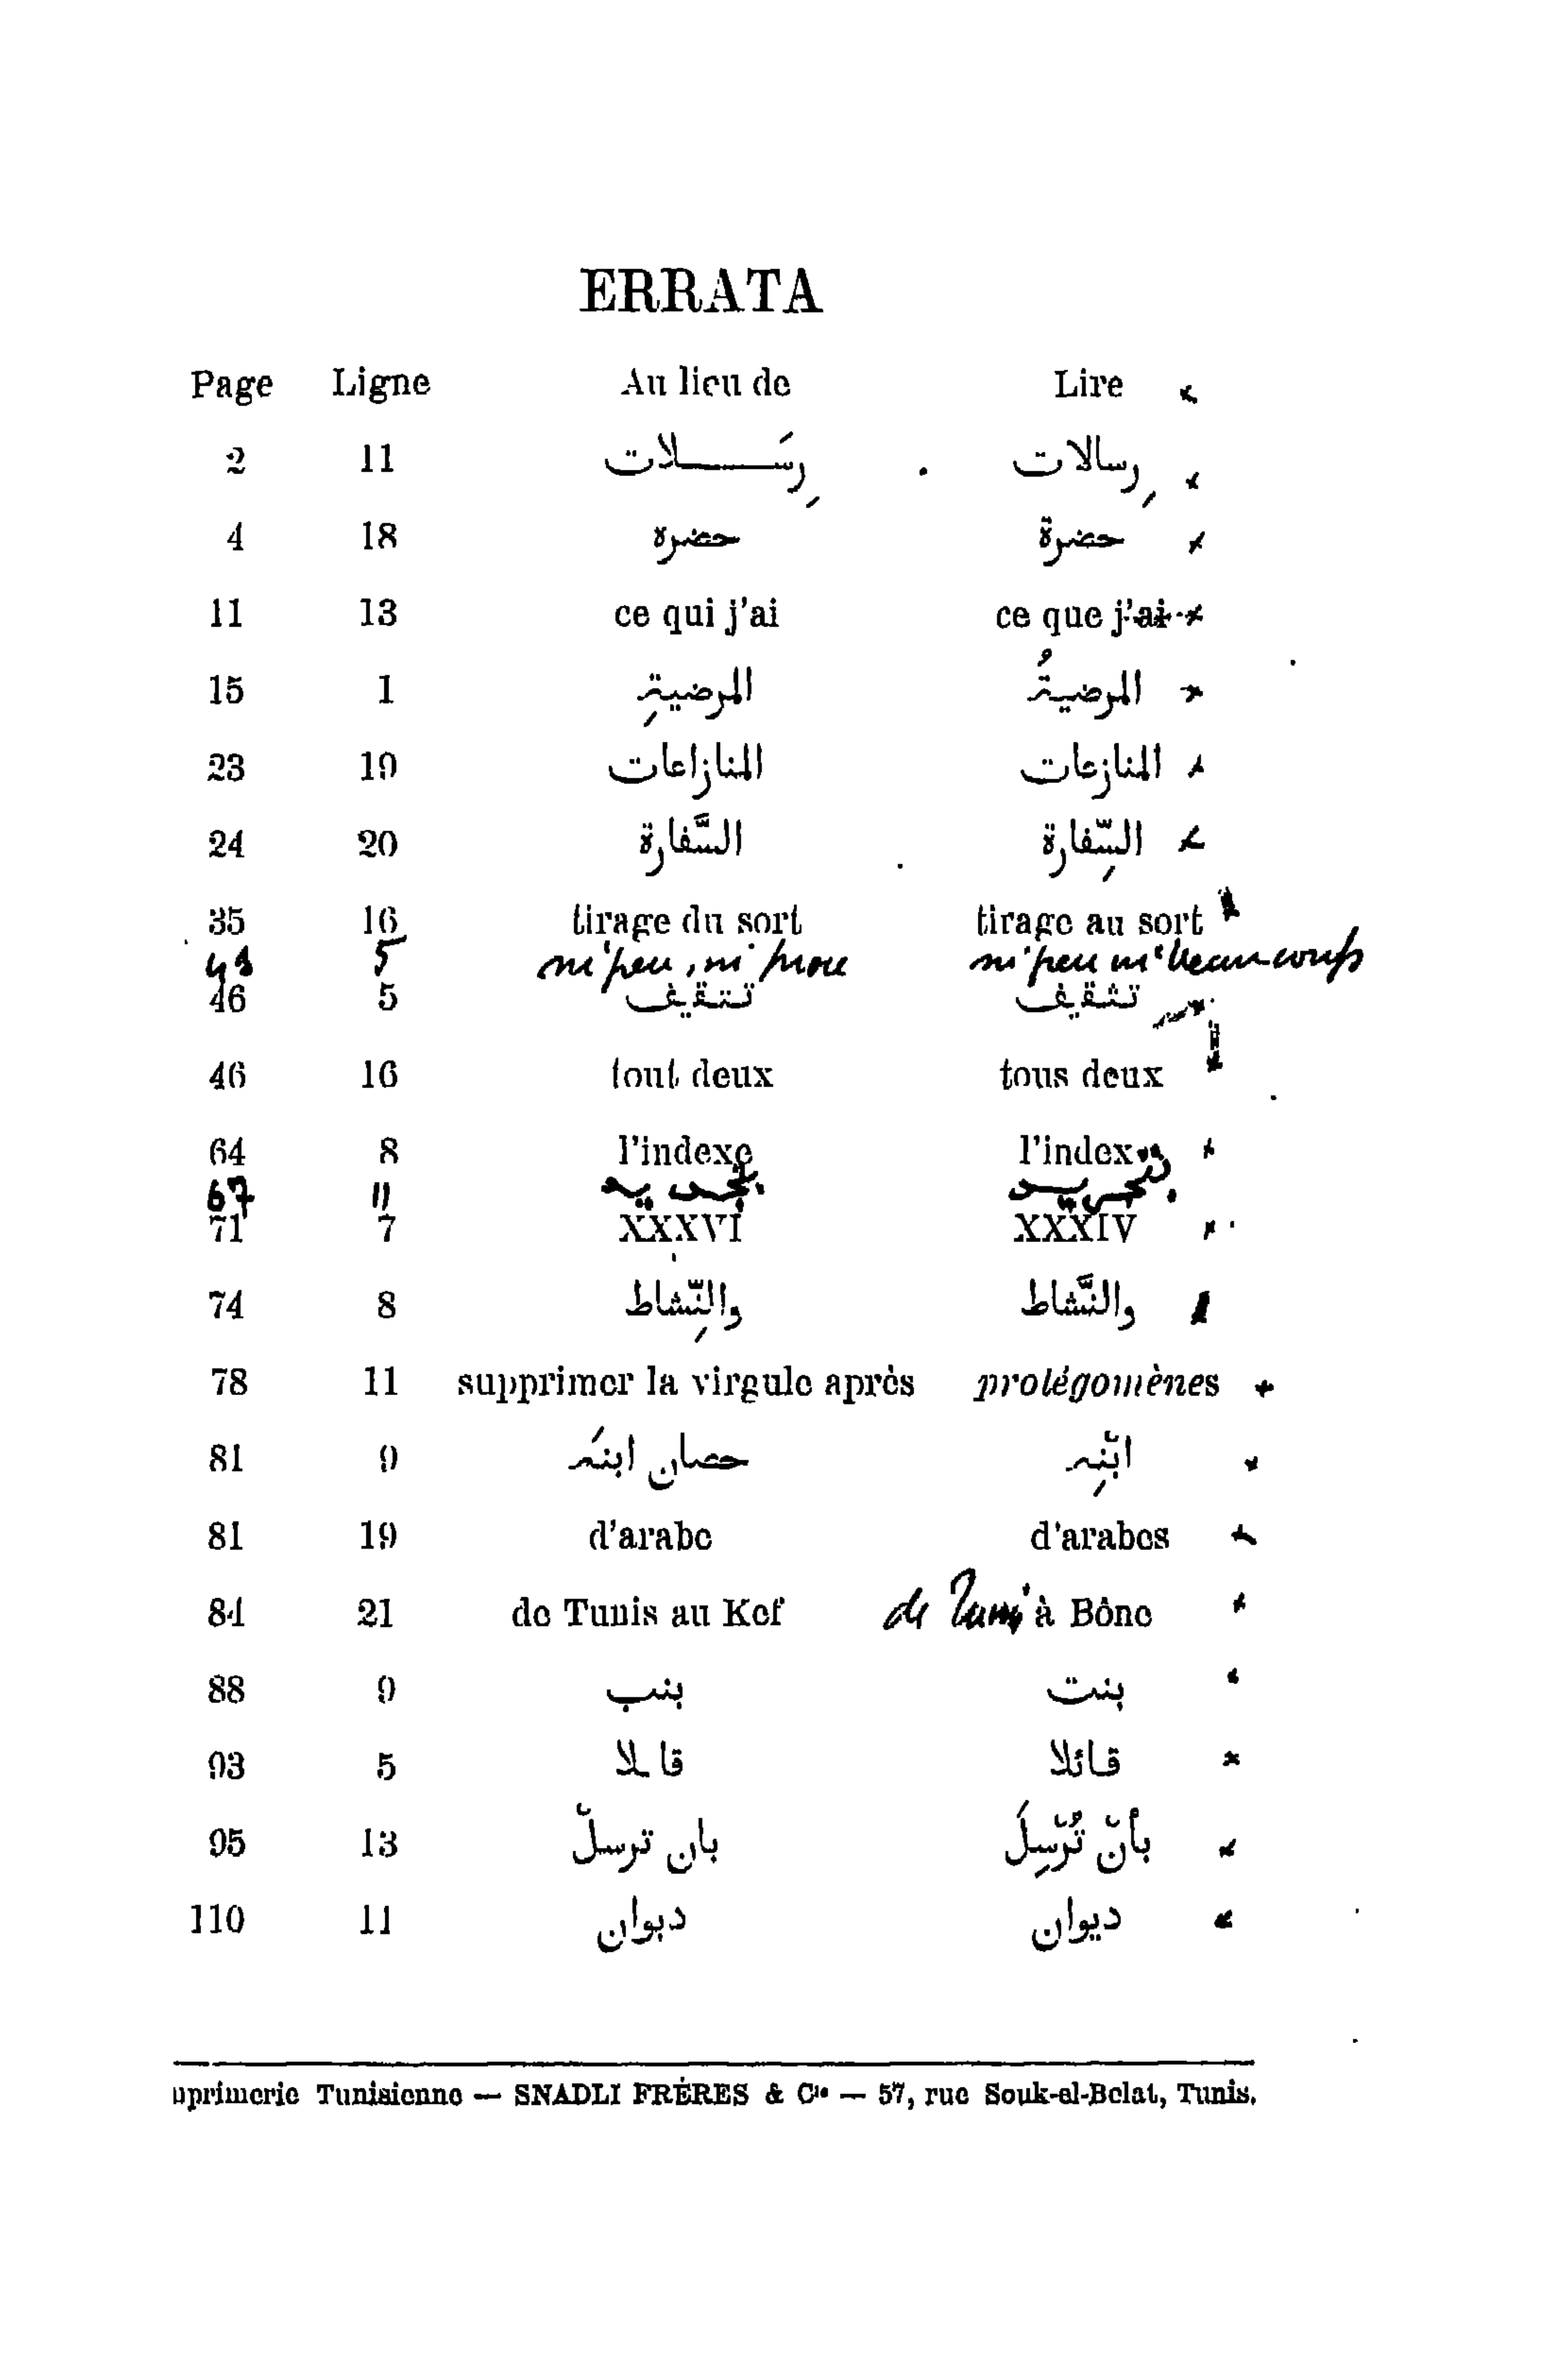 ERRATA
Page Ligne Au lieu de Lire
2 11 رِسَـــلات رِسالات
4 18 حضره حضرة
11 13 ce qui j'ai ce que j'ai
15 1 المرضيةِ المرضيةُ
23 19 المنازاعات المنازعات
24 20 السَّفارة السِّفارة
35 16 tirage du sort tirage au sort
43 5 ni peu, ni prou ni peu ni beaucoup
46 5 تتقيف تثقيف
46 16 tout deux tous deux
64 8 l'indexe l'index
67 11
71 7 XXXVI XXXIV
74 8 والنِّشاط والنَّشاط
78 11 supprimer la virgule après prolégomènes
81 9 حصان ابنَه ابّنِه
81 19 d'arabe d'arabes
84 21 de Tunis au Kef de Tunis à Bône
88 9 بنب بنت
93 5 قا لا قائلا
95 13 بان ترسلّ بأنّ تُرّسِلَ
110 11 دبوان ديوان
mprimerie Tunisienne — SNADLI FRÈRES & Cie — 57, rue Souk-el-Belat, Tunis.